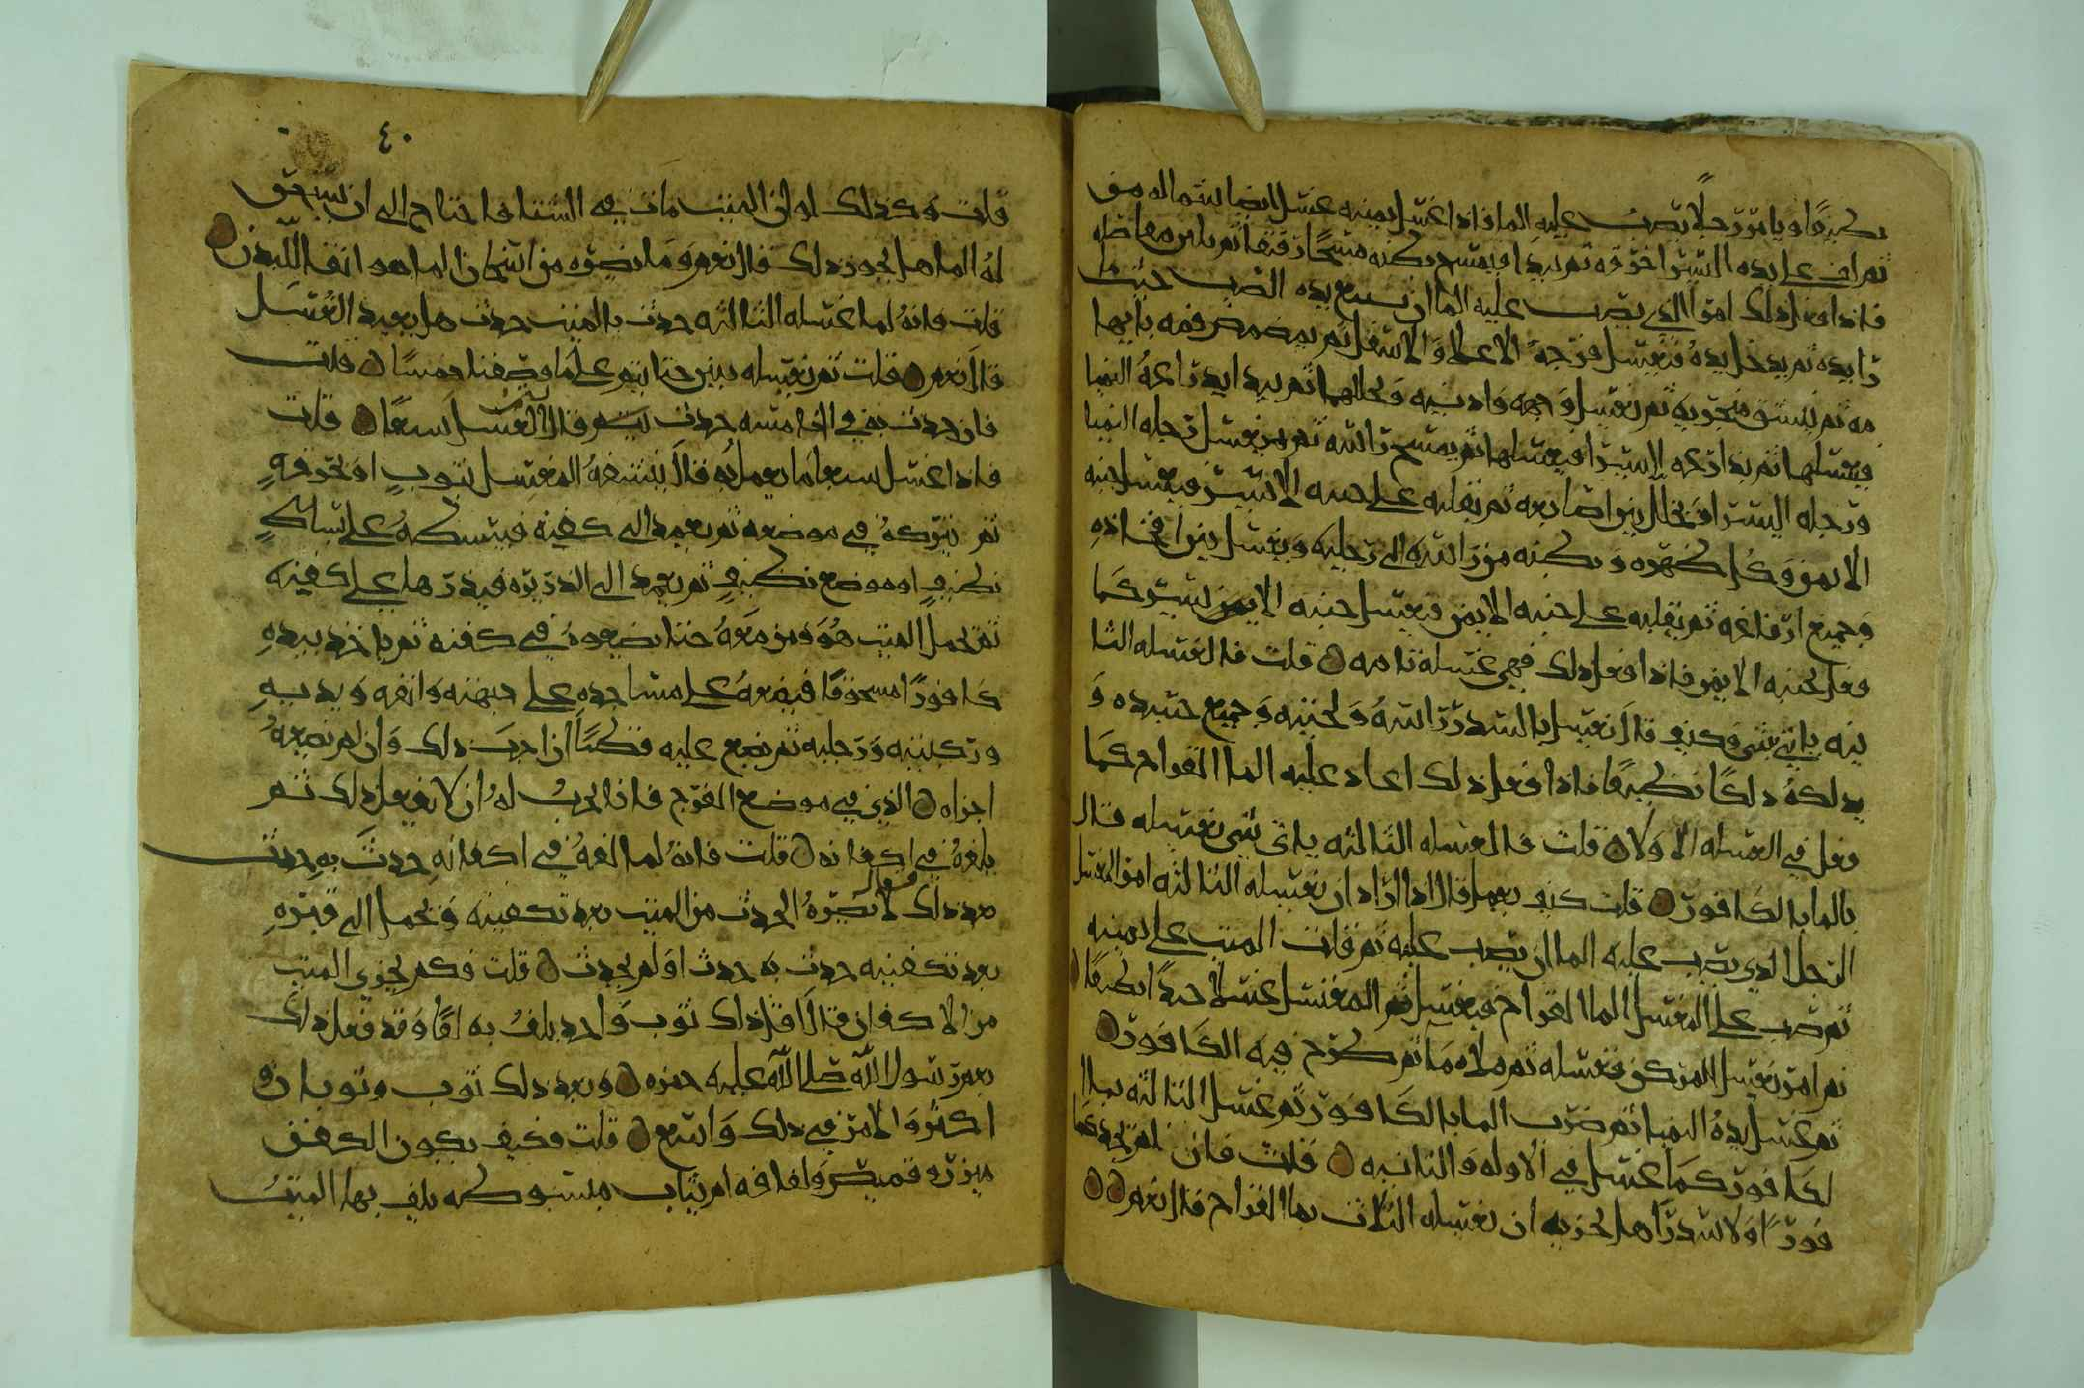 نظيفًا او يامر رجلًا يصب عليه الما فاذا غسل يمينه غسل ايضا شماله من
ثم لف على يده اليسرا خرقه ثم يبدا فيمسح بطنه مسحًا رفيقا ثم
فاذا فعل ذلك امر الذي يصب عليه الما ان يتبع يده الصب حيث
دا يده ثم يدخل يده فيغسل فرجه الاعلا والاسفل ثم يمضمض فمه بابها
مه ثم ينشق منخريه ثم يغسل وجهه واذنيه ولحيته ثم يبدا يد ذراعه اليمنا
فيغسلها ثم يذراعه اليسرا فيغسلها ثم يمسح راسه ثم يغسل رجله اليمنا
ورجله اليسرا ويخلل بين اصابعه ثم يقلبه على جنبه الايسر فيغسل جنبه
الايمن وكل ظهره وبطنه من راسه الى رجليه ويغسل بين افخاذه
وجميع ارفاغه ثم يقلبه على جنبه الايمن فيغسل جنبه الايسر كما
فعل بجنبه الايمن فاذا فعل ذلك فهي غسله تامه قلت فالغسله الثا
نيه باي شي وكيف قال يغسل بالسدر راسه ولحيته وجميع جسده و
يدلكه دلكًا نظيفًا فاذا فعل ذلك اعاد عليه الما القراح كما
فعل في الغسله الاولا قلت فالغسله الثالثه باي شي يغسله قال
بالما بالكافور قلت كيف يعمل قال اذا اراد ان يغسله الثالثه امر المغسل
الرجل الذي يصب عليه الما ان يصب عليه ثم فات الميت على يمينه
ثم يصب على المغسل الما القراح فيغسل ثم المغتسل غسلا جيدًا نظيفًا
ثم امر بغسل المركن فغسله ثم ملاه ما ثم طرح فيه الكافور
ثم غسل يده اليمنا ثم ضرب الما بالكافور ثم غسل الثالثه بما ا
لكافور كما غسل في الاوله والثانيه قلت فان لم يجد كا
فورًا ولا سدرًا هل يجزيه ان يغسله الثلاث بما القراح قال نعم
٤٠
قلت وكذلك لو ان الميت مات في الشتا فاحتاج الى ان يسحق
له الما هل يجوز ذلك قال نعم وما يضره من اسخان الما هو انقا للبدن
قلت فانه لما غسله الثالثه حدث بالميت حدث هل يعيد الغسل
قال نعم قلت ثم يغسله بين حتا يتم على ما وصفنا خمسًا قلت
فان حدث به في الخامسه حدث قال الغسل سبعًا قلت
فاذا غسل سبعا ما يعمل به قال ينشفه المغسل بثوبٍ او بخرقهٍ
ثم يتركه في موضعه ثم يعمد الى كفنه فيبسطه على بساطٍ
نظيفٍ او موضع نظيفٍ ثم يعمد الى الذريره فيذرها على اكفنه
ثم يحمل الميت هو ومن معه حتا يضعوه في كفنه ثم ياخذ بيده
كافورًا مسحوقًا فيضعه على مساجده على جبهته وانفه ويديه
وركبتيه ورجليه ثم يضع عليه قطنًا ان احب ذلك وان لم يضعه
اجزاه الذي في موضع الفرج فانا احب له ان لا يفعل ذلك ثم
يلفه في اكفانه قلت فانه لما لفه في اكفانه حدث به حدث
بعد ذلك قال لا يضره الحدث من الميت بعد تكفينه ويحمل الى قبره
بعد تكفينه حدث به حدث او لم يحدث قلت فكم يجزي الميت
من الاكفان قال اقل ذلك ثوب واحد يلف به لفًا وقد فعل ذلك
بعم رسول الله صلى الله عليه حمزه وبعد ذلك ثوب وثوبان و
اكثر والامر في ذلك واسع قلت فكيف يكون الكفن
ميزره وقميص ولفافه ام ثياب مبسوطه يلف بها الميت